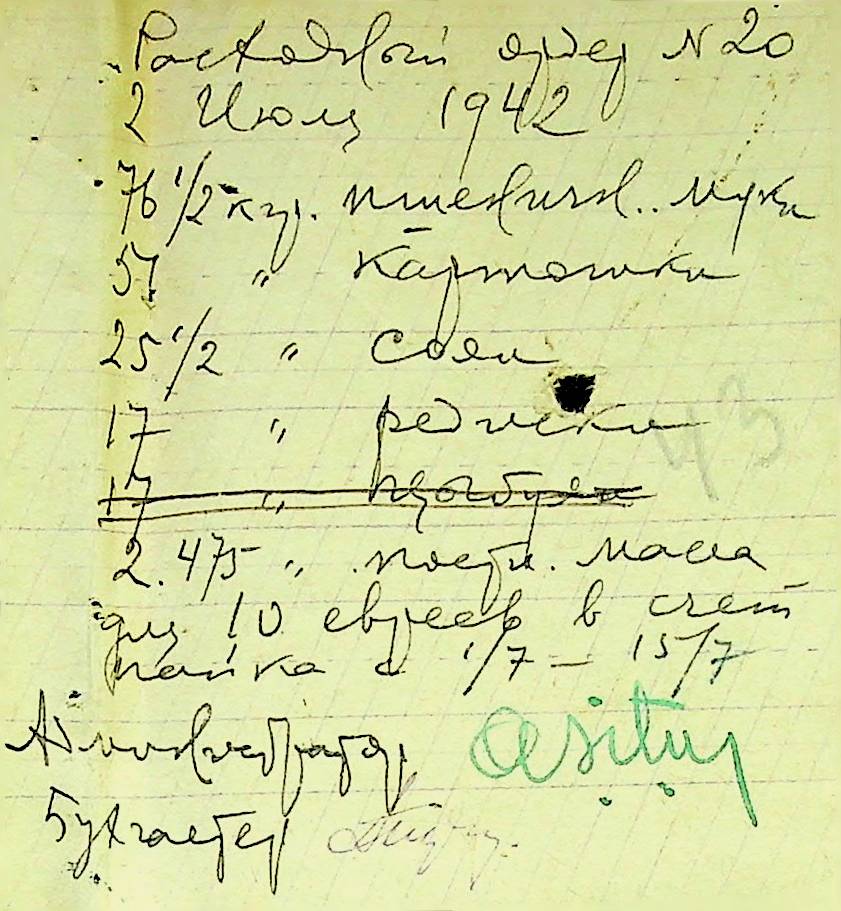 Расходный ордер N 20
2 Июля 1942
76 1/2 кгр. пшеничн.. муки
51 " картошки
25 1/2 " сои
17 " редиски
17 "
2.475 " постн. масла
для 10 евреев в счет
пайка с 1/7 – 15/7
Администратор
Бухгалтер
43